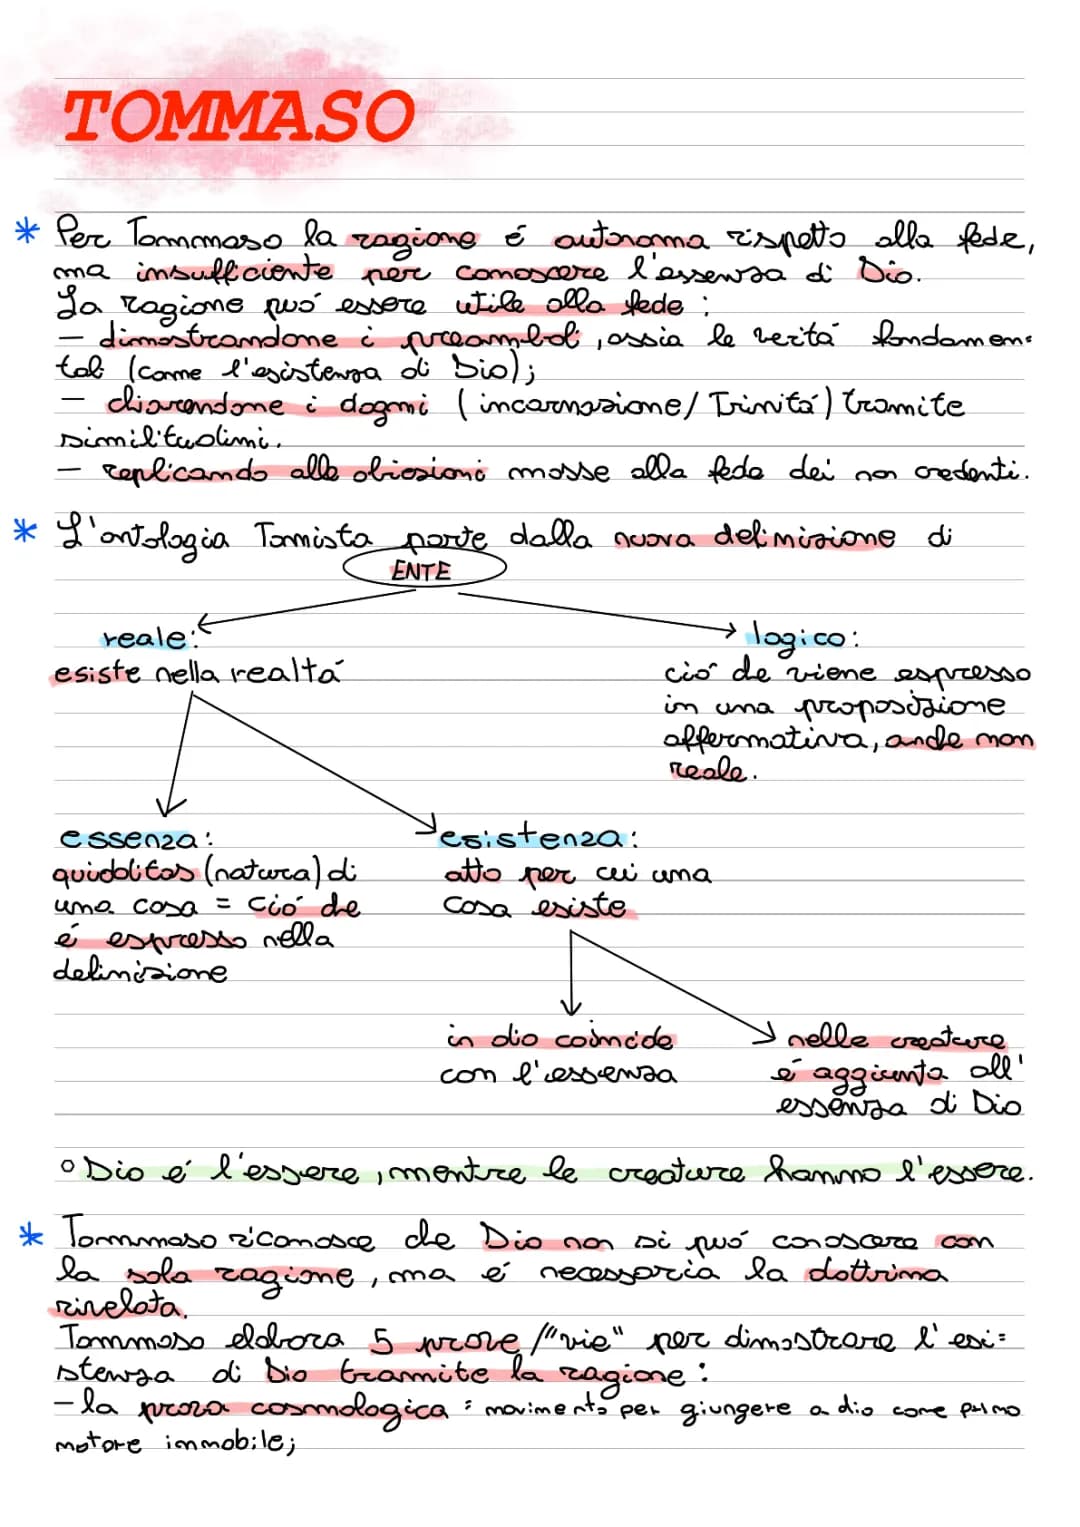 TOMMASO
* Per Tommaso la ragione é autonoma rispetto alla fede,
ma insufficiente per conoscere l'essenza di Dio.
La ragione può essere utile alla fede:
- dimostrandone i preamboli, ossia le verità fondamen=
tali (come l'esistenza di Dio);
- chiarendone i dogmi (incarnazione/Trinità) tramite
similitudini.
- replicando alle obiezioni mosse alla fede dei non credenti.
* L'ontologia Tomista parte dalla nuova definizione di
ENTE
reale:
esiste nella realtà
logico:
ciò che viene espresso
in una proposizione
affermativa, anche non
reale.
essenza:
quidditas (natura) di
una cosa = ciò che
é espresso nella
definizione
esistenza:
atto per cui una
cosa esiste
in dio coincide
con l'essenza
nelle creature
é aggiunta all'
essenza di Dio
° Dio é l'essere, mentre le creature hanno l'essere.
* Tommaso riconosce che Dio non si può conoscere con
la sola ragione, ma é necessaria la dottrina
rivelata.
Tommaso elabora 5 prove/"vie" per dimostrare l'esi=
stenza di Dio tramite la ragione:
- la prova cosmologica: movimento per giungere a dio come primo
motore immobile;